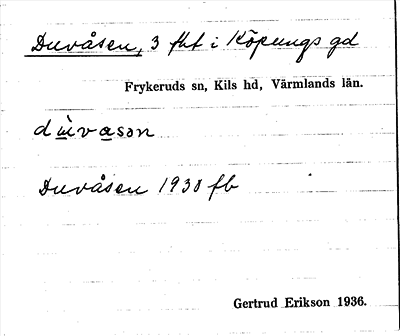 Duvåsen, 3 fbt i Köpungs gd
Frykeruds sn, Kils hd, Värmlands län.
dùvasən
Duvåsen 1930 fb
Gertrud Erikson 1936.